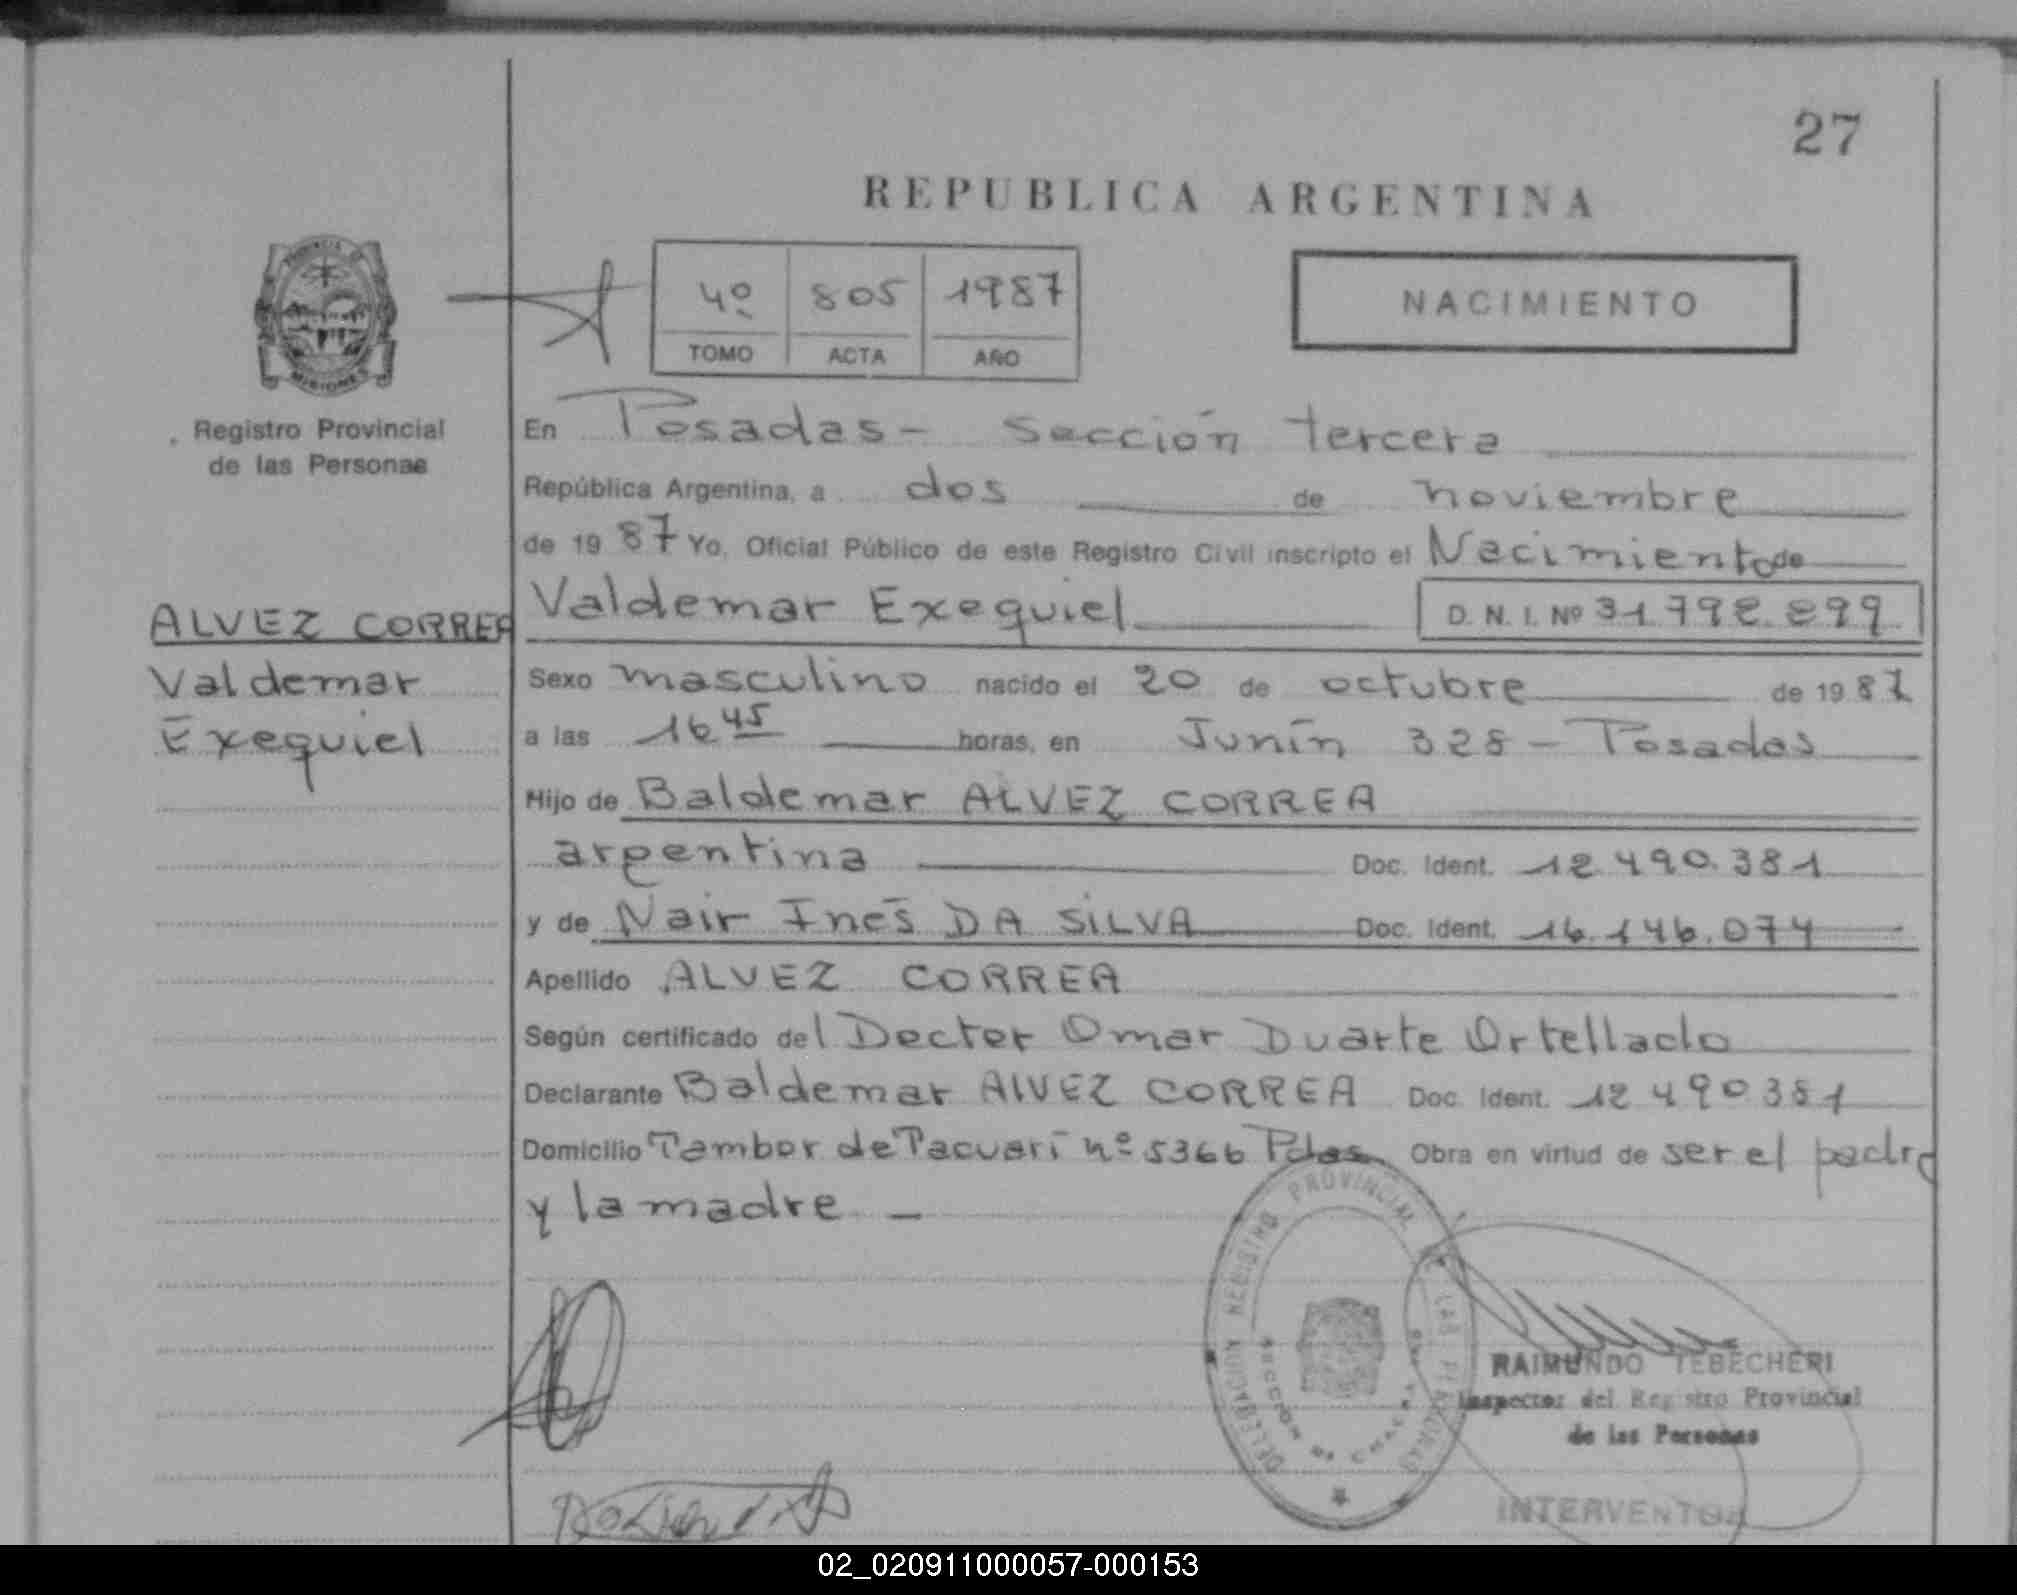 27
REPUBLICA ARGENTINA
PROVINCIA
MISIONES
4º 805 1987
TOMO ACTA AÑO
NACIMIENTO
Registro Provincial
de las Personas
En Posadas - Sección tercera
República Argentina, a dos de noviembre
de 1987 Yo, Oficial Público de este Registro Civil inscripto el Nacimiento de
ALVEZ CORREA
Valdemar
Exequiel
Valdemar Exequiel D. N. I. Nº 31.792.899
Sexo masculino nacido el 20 de octubre de 1987
a las 16 45 horas, en Junín 328 - Posadas
Hijo de Baldemar ALVEZ CORREA
argentina Doc. Ident. 12.490.381
y de Nair Inés DA SILVA Doc. Ident. 16.146.074
Apellido ALVEZ CORREA
Según certificado del Doctor Omar Duarte Ortellado
Declarante Baldemar AlVEZ CORREA Doc. Ident. 12 490381
Domicilio Tambor de Tacuarí nº 5366 Pdas Obra en virtud de ser el padre
y la madre -
DELEGACION REGISTRO PROVINCIAL DE LAS PERSONAS
RAIMUNDO TEBECHERI
Inspector del Registro Provincial
de las Personas
INTERVENTOR
02_020911000057-000153